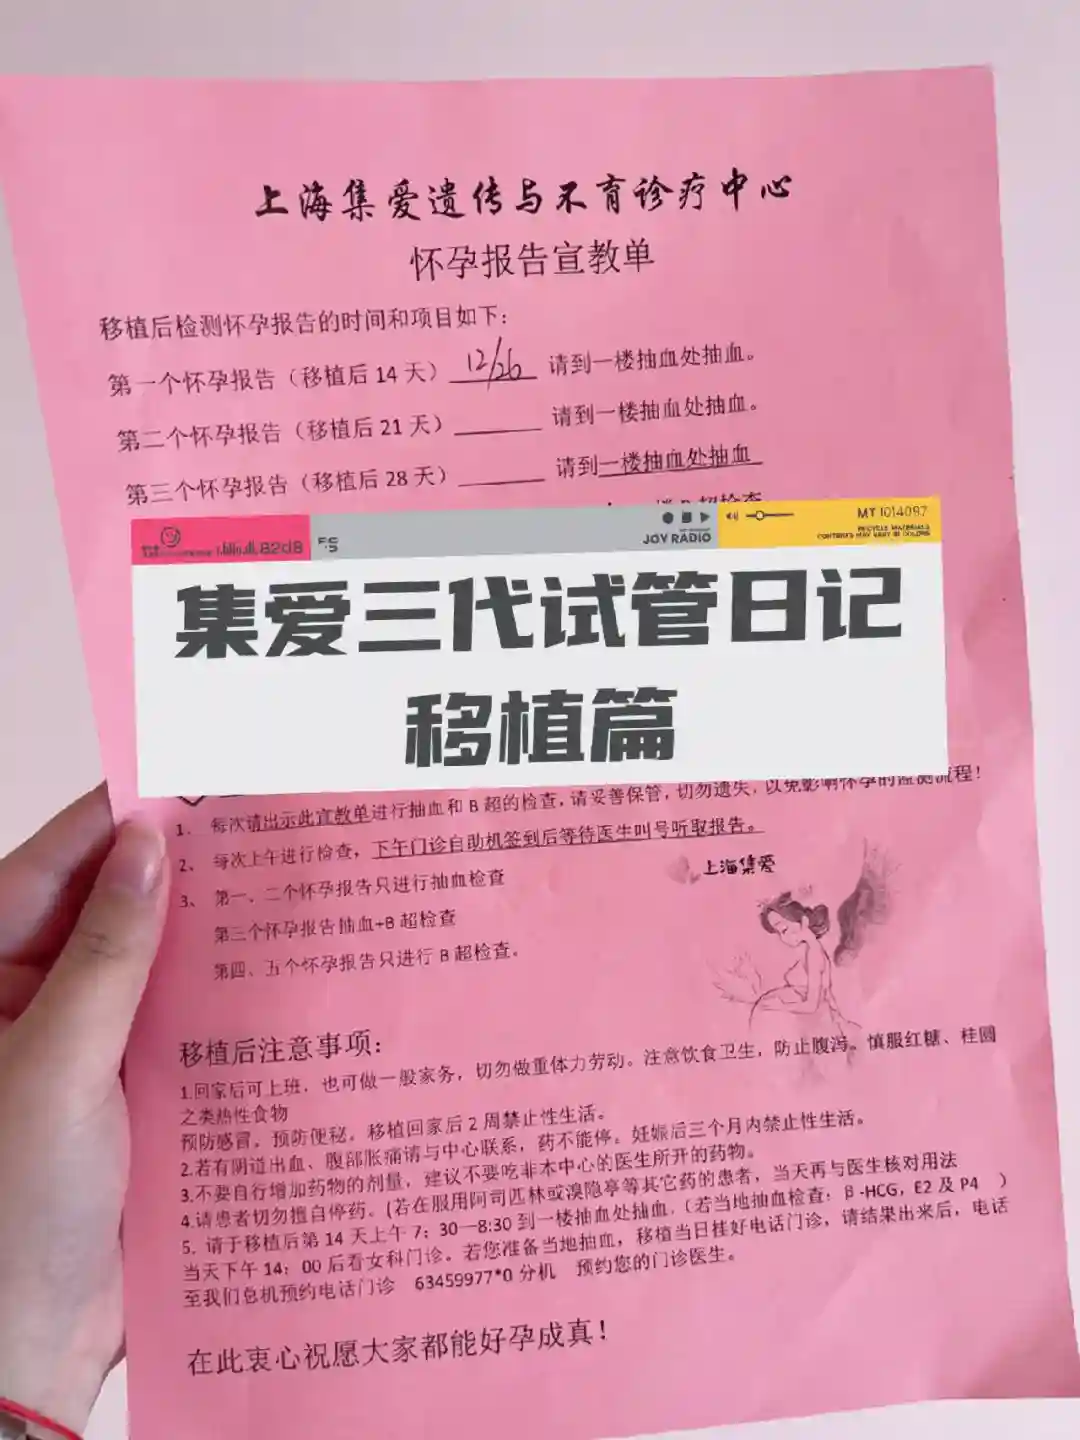 上海集爱遗传与不育诊疗中心
怀孕报告宣教单
移植后检测怀孕报告的时间和项目如下：
第一个怀孕报告（移植后14天）12/26 请到一楼抽血处抽血。
第二个怀孕报告（移植后21天）______ 请到一楼抽血处抽血。
第三个怀孕报告（移植后28天）______ 请到一楼抽血处抽血
82d8
JOY RADIO
MT 1014097
RECYCLE MATERIALS
CONTENTS MAY VARY IN COLORS
集爱三代试管日记
移植篇
1、 每次请出示此宣教单进行抽血和B超的检查，请妥善保管，切勿遗失，以免影响怀孕的检测流程！
2、 每次上午进行检查，下午门诊自助机签到后等待医生叫号听取报告。
3、 第一、二个怀孕报告只进行抽血检查
第三个怀孕报告抽血+B超检查
第四、五个怀孕报告只进行B超检查。
上海集爱
移植后注意事项：
1.回家后可上班，也可做一般家务，切勿做重体力劳动。注意饮食卫生，防止腹泻。慎服红糖、桂圆
之类热性食物
预防感冒，预防便秘，移植回家后2周禁止性生活。
2.若有阴道出血、腹部胀痛请与中心联系，药不能停。妊娠后三个月内禁止性生活。
3.不要自行增加药物的剂量，建议不要吃非本中心的医生所开的药物。
4.请患者切勿擅自停药。(若在服用阿司匹林或溴隐亭等其它药的患者，当天再与医生核对用法
5. 请于移植后第14天上午7：30—8:30到一楼抽血处抽血，（若当地抽血检查：β-HCG，E2及P4 ）
当天下午14：00后看女科门诊。若您准备当地抽血，移植当日挂好电话门诊，请结果出来后，电话
至我们总机预约电话门诊 63459977*0分机 预约您的门诊医生。
在此衷心祝愿大家都能好孕成真！